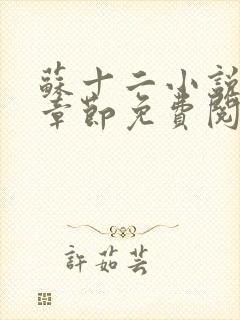 蘇十二小說
章節免費閱
許茹芸